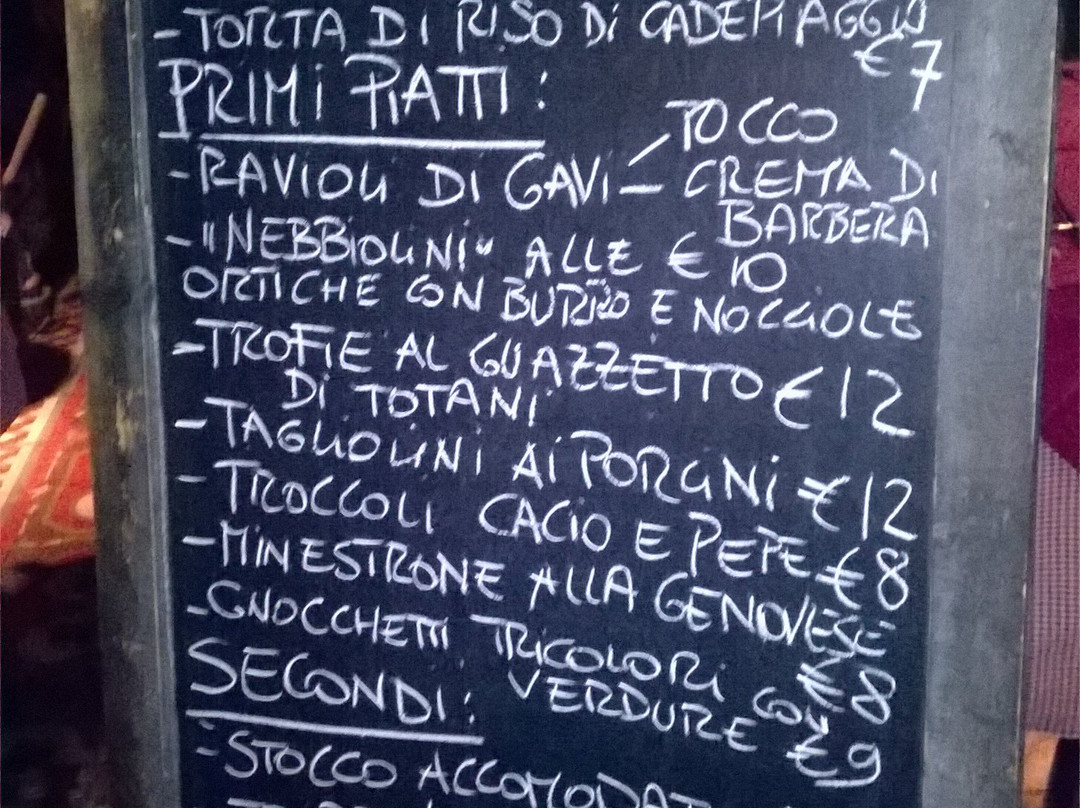 - TORTA DI RISO DI CADEMIAGGIO
€ 7
PRIMI PIATTI :
- RAVIOLI DI GAVI - TOCCO
- CREMA DI
BARBERA
- "NEBBIOLINI" ALLE € 10
ORTICHE CON BURRO E NOCCIOLE
- TROFIE AL GUAZZETTO € 12
DI TOTANI
- TAGLIOLINI AI PORCINI € 12
- TROCCOLI CACIO E PEPE € 8
- MINESTRONE ALLA GENOVESE
€ 8
- GNOCCHETTI TRICOLORI CON
VERDURE € 9
SECONDI :
- STOCCO ACCOMODAT